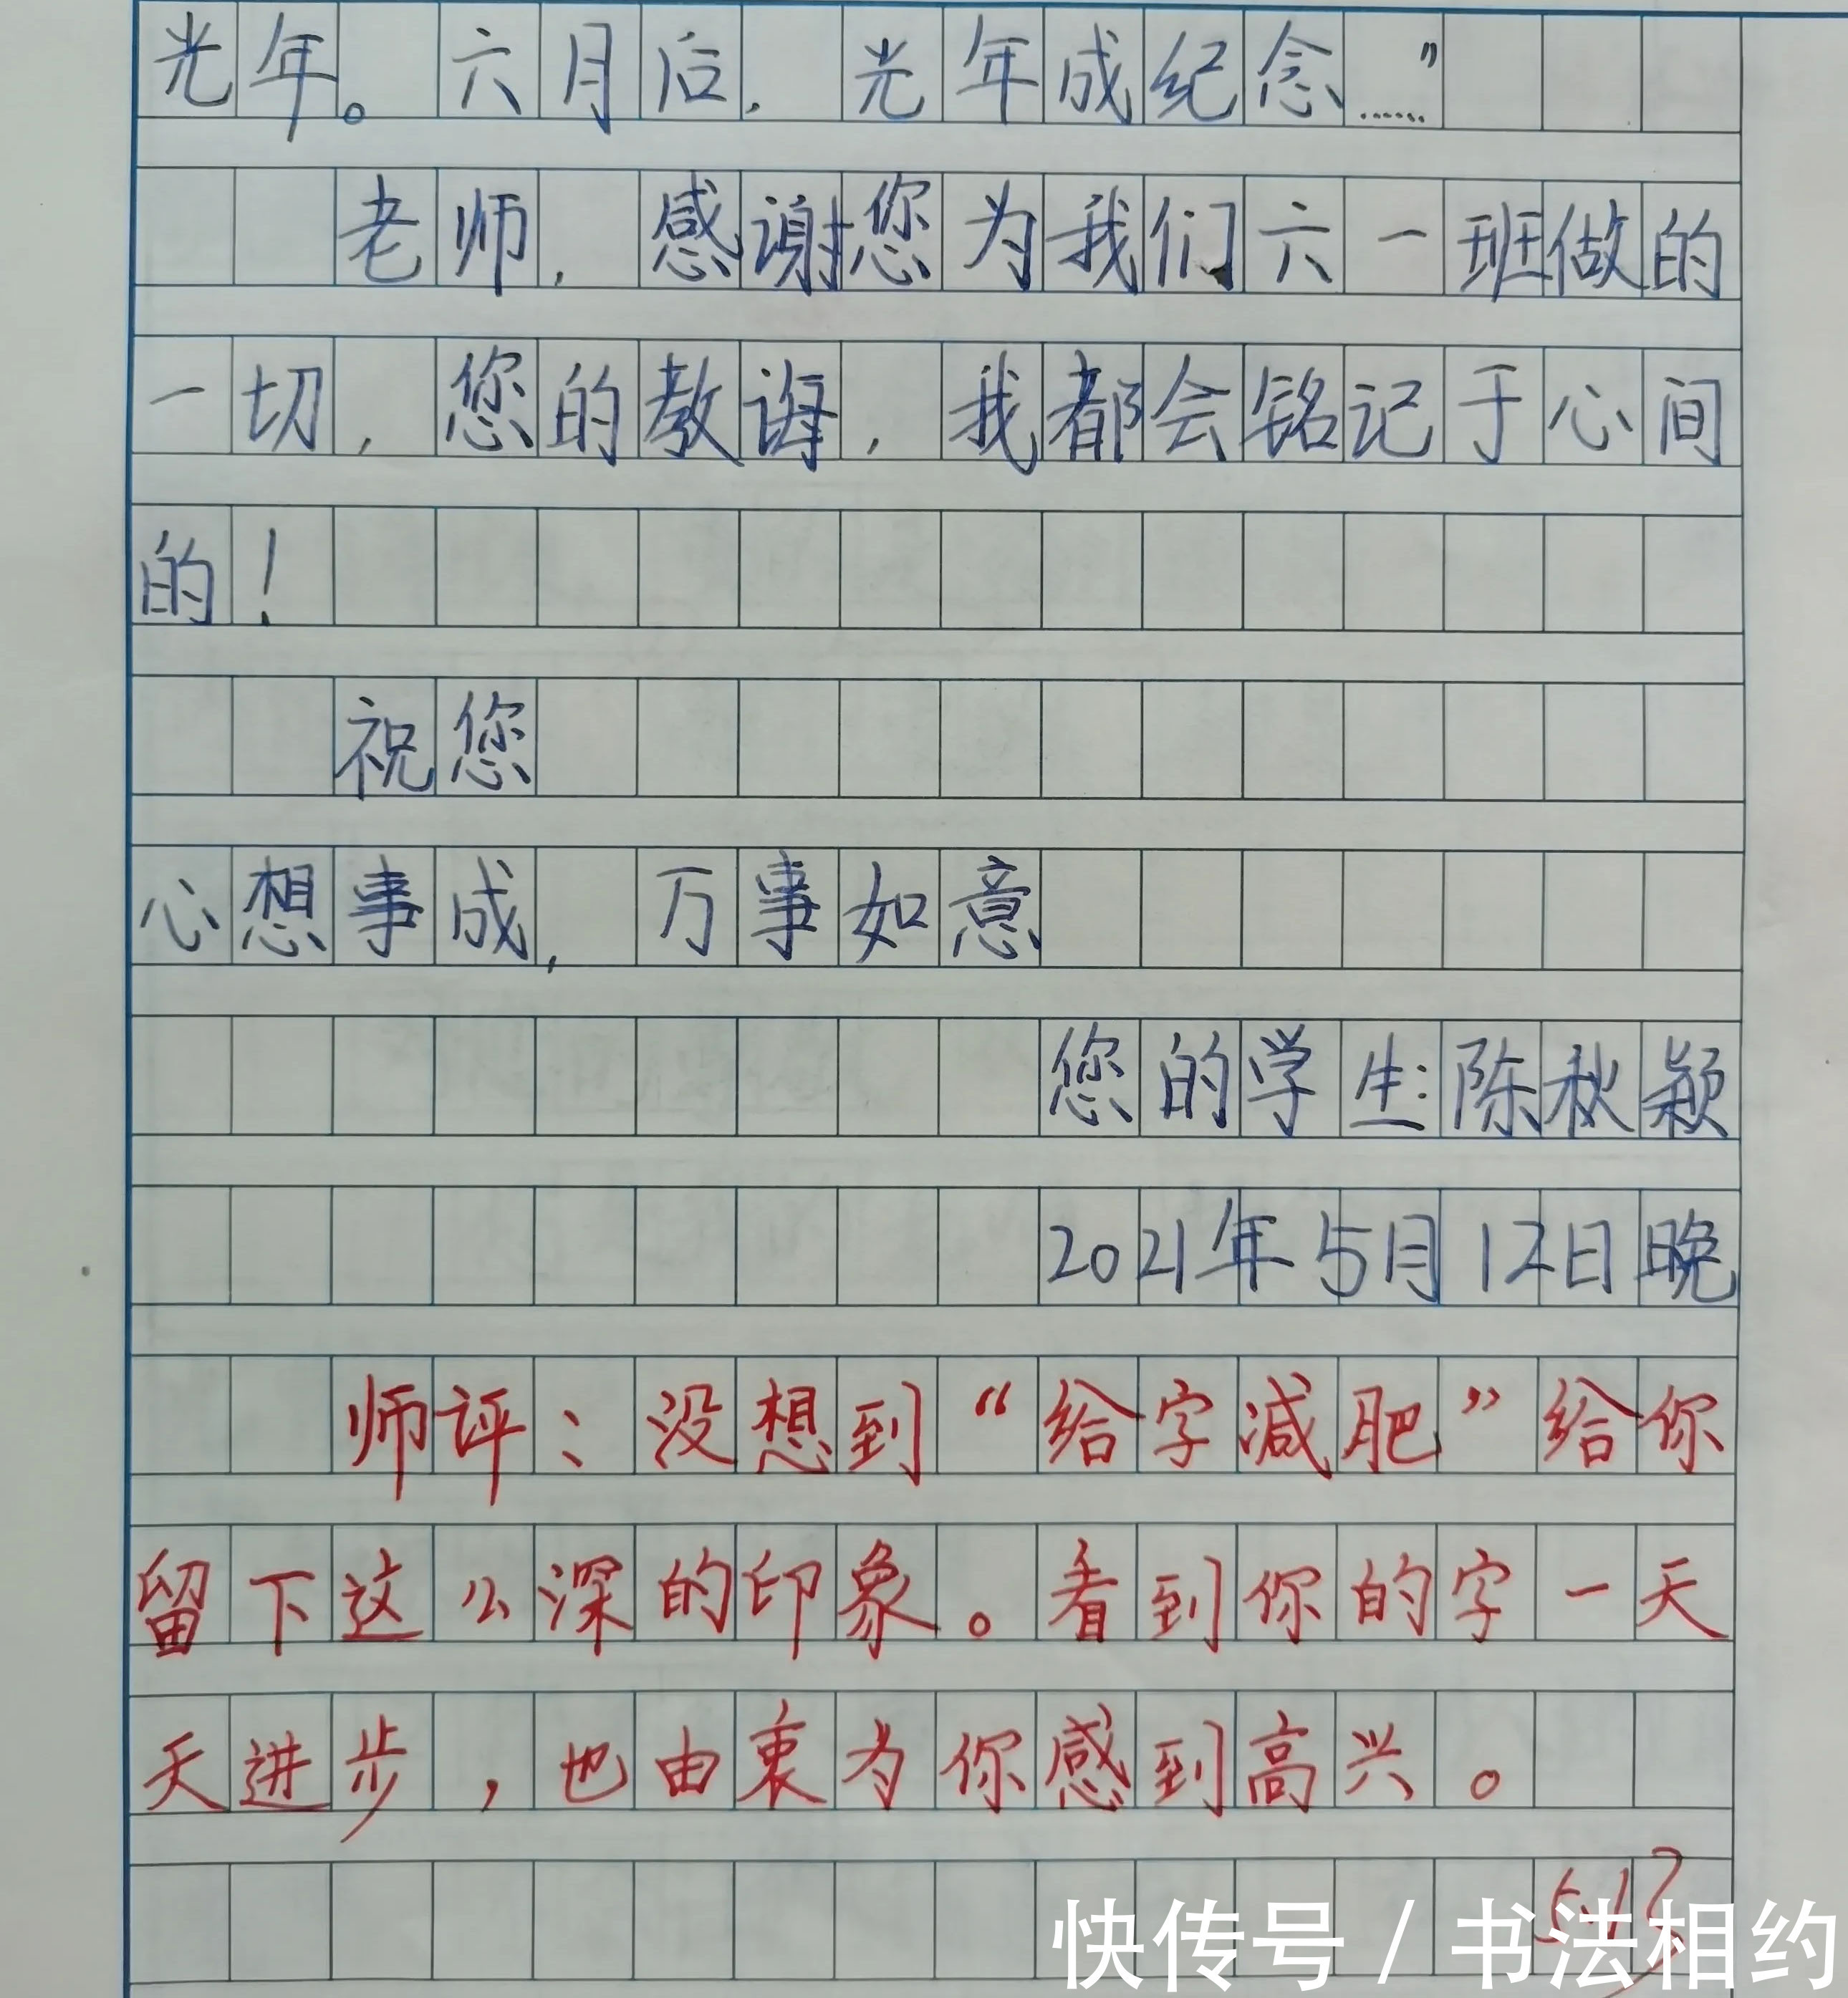 光年。六月后,光年成纪念……”
老师,感谢您为我们六一班做的
一切,您的教诲,我都会铭记于心间
的!
祝您
心想事成,万事如意
您的学生:陈秋颖
2021年5月12日晚
师评:没想到“给字减肥”给你
留下这么深的印象。看到你的字一天
天进步,也由衷为你感到高兴。
5.13
快传号/书法相约